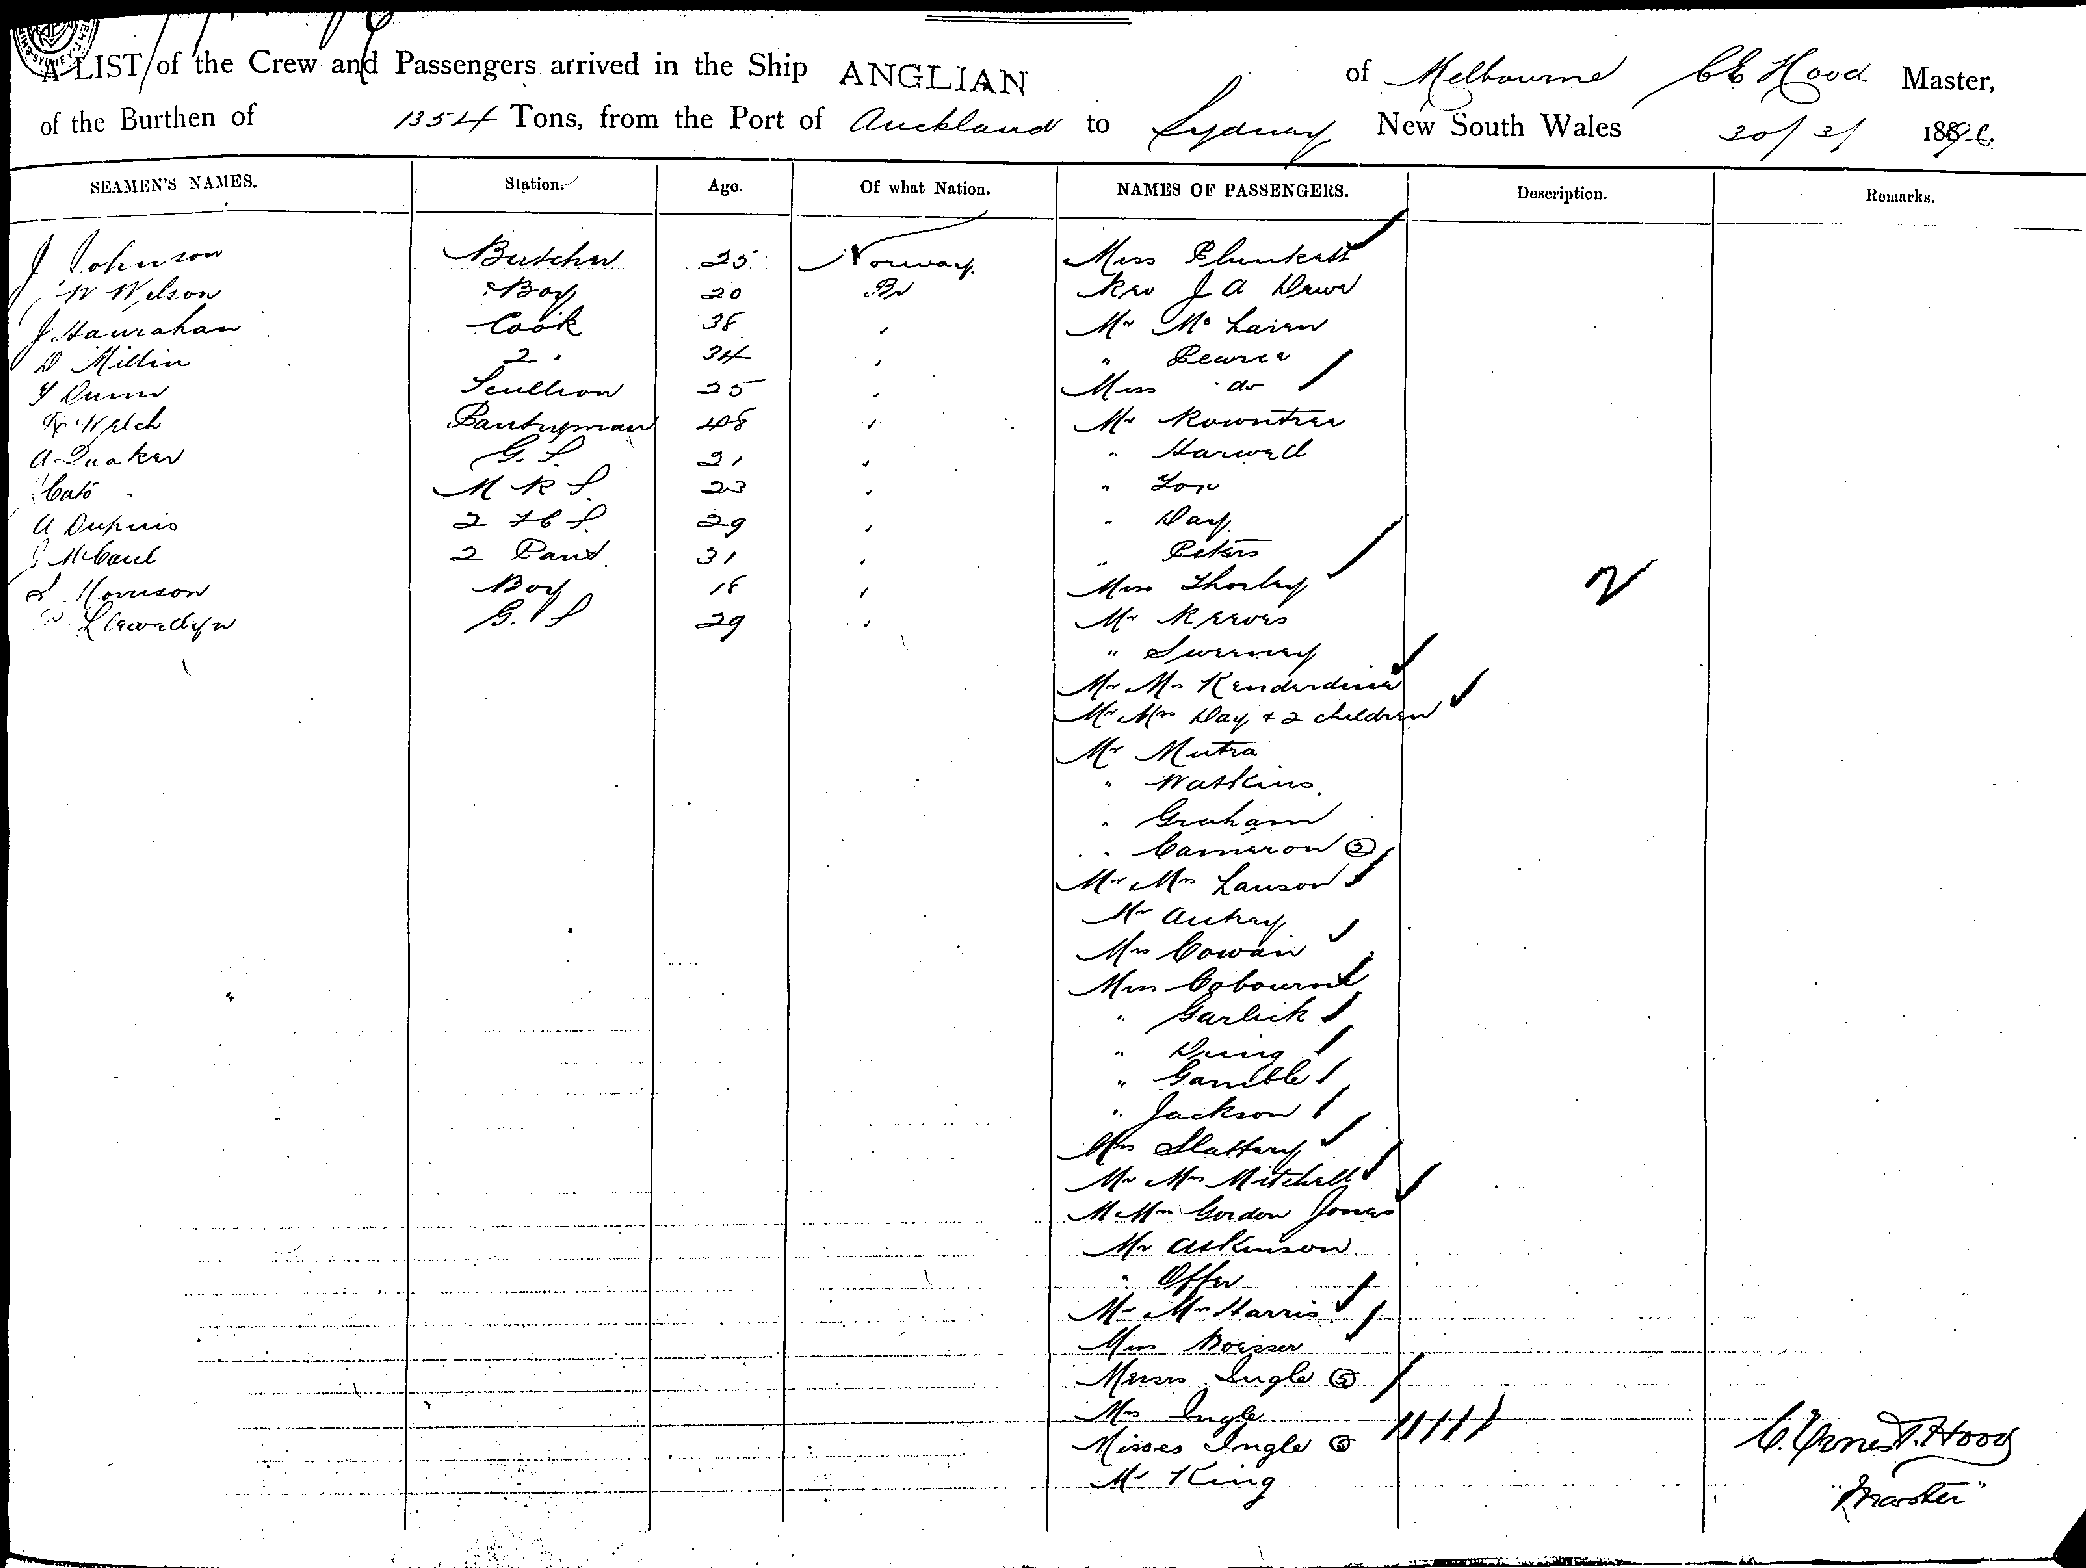 A LIST of the Crew and Passengers arrived in the Ship ANGLIAN of Melbourne C E Hood Master,
of the Burthen of 1354 Tons, from the Port of Auckland to Sydney New South Wales 20/2/ 1896
SEAMEN'S NAMES. Station. Age. Of what Nation. NAMES OF PASSENGERS. Description. Remarks.
J Johnson Butcher 25 Norway Miss Plunkett
W Wilson Boy 20 Br Rev J A Dewe
J Hanrahan Cook 38 " Mr McLaren
D Millin 2 " 34 " " Pearce
F Dunn Scullion 25 " Miss do
Welch Pantryman 48 " Mr Rowntree
A Quaker G. S. 21 " " Harwell
Cato M R S. 23 "
A Dupuis 2 29 " " Day
McCaul 2 Pant. 31 " " Peters
Morrison Boy 18 " Miss Thorley 2
Llewellyn G. S 29 " Mr Reeves
" Sweeney
Mr Mrs Kenderdine
Mr Mrs Day + 2 children
Mr Mutra
" Watkins.
" Graham
" Cameron 2
Mr Mrs Lawson
Mr
Mrs Cowan
Miss
" Garlick
" Dring
" Gamble
" Jackson
Mrs Slattery
Mr Mrs Mitchell
Mr Mrs Gordon Jones
Mr Atkinson
" Offer
Mr Mrs Harris
Miss
Messrs Ingle
Mrs Ingle
Misses Ingle
Mr King
C. Ernest. Hood
"Master"